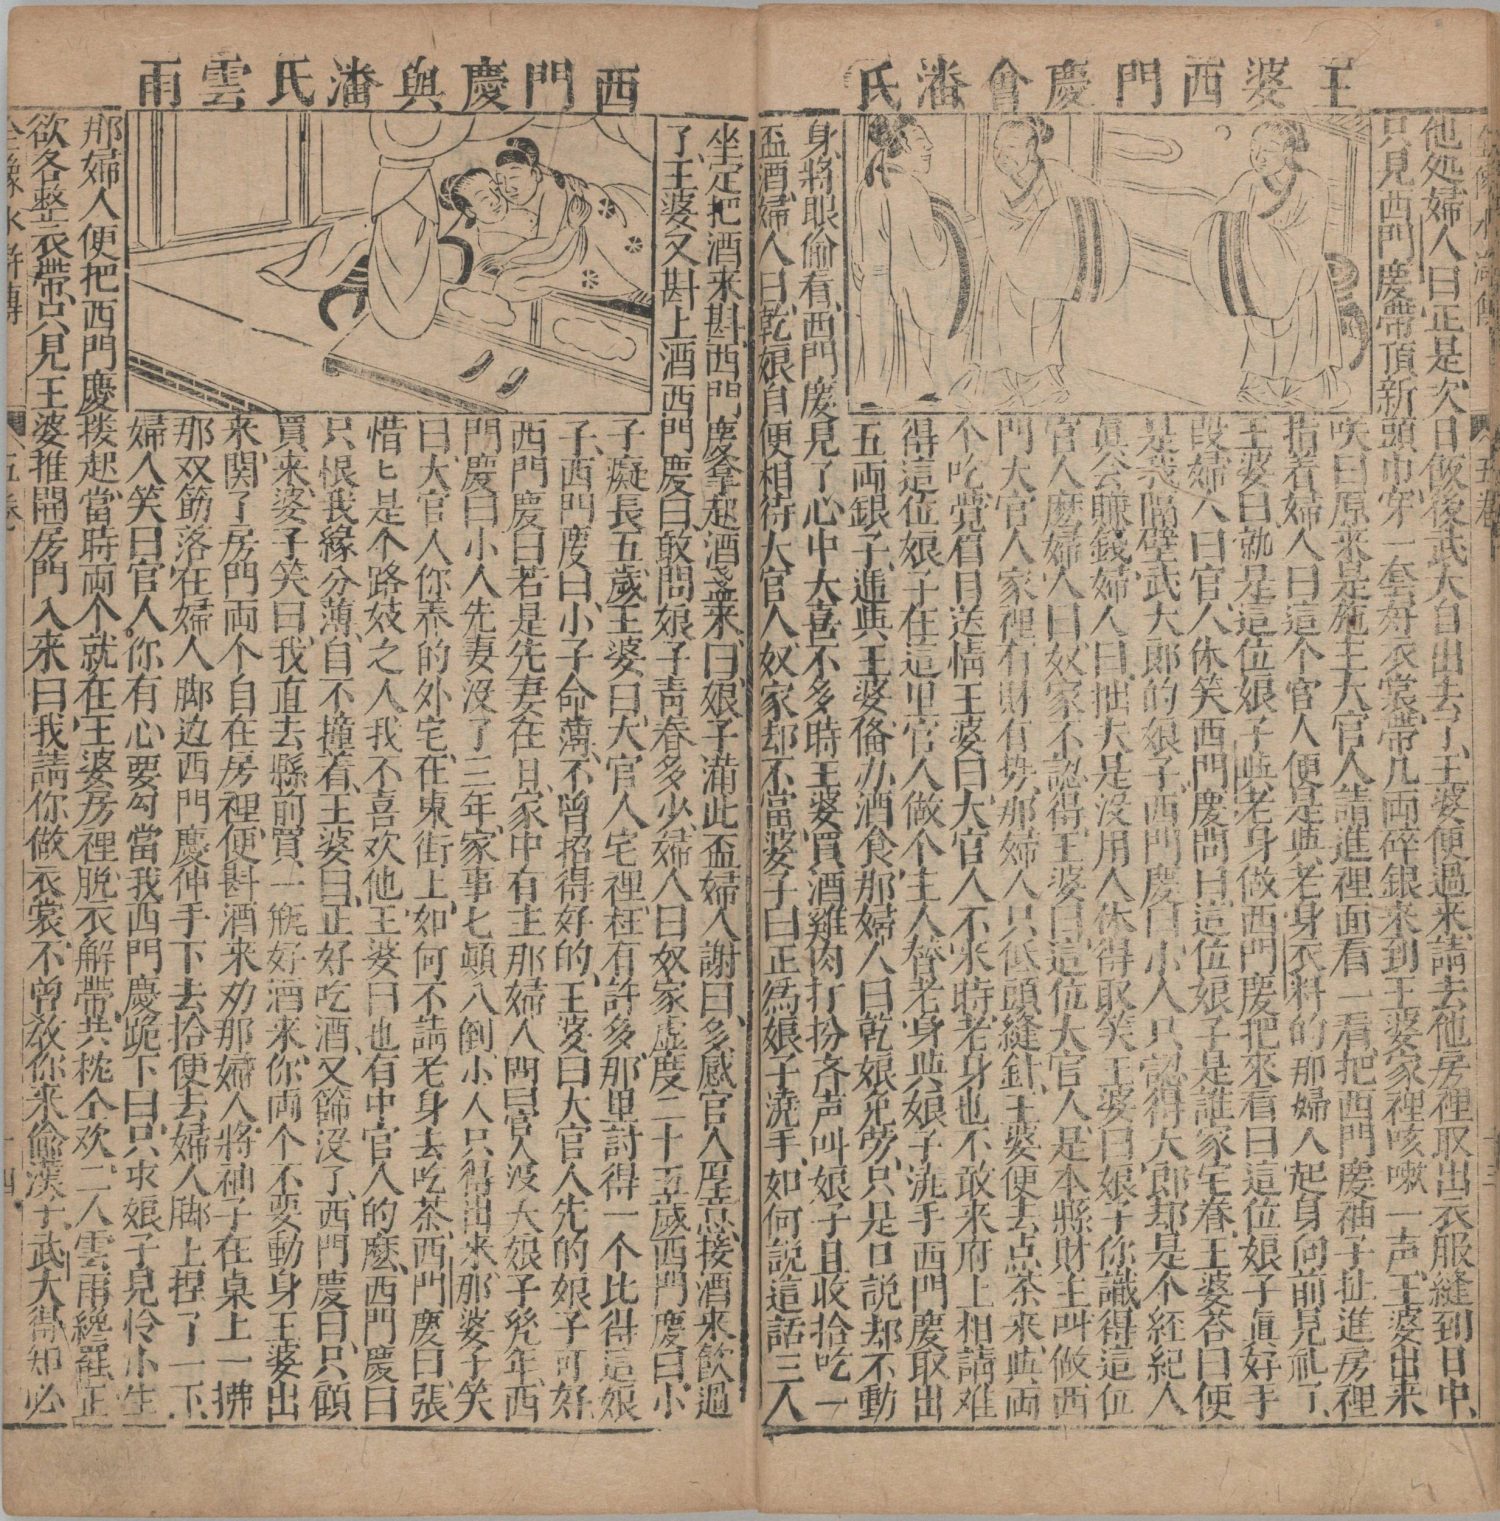 王婆西門慶會潘氏
他処婦人曰正是次日飯後武大自出去了王婆便過來請去他房裡取出衣服縫到日中
只見西門慶帶頂新頭巾穿一套好衣裳帶几両碎銀来到王婆家裡咳嗽一声王婆出来
笑曰原来是施主大官人請進裡面看一看把西門慶袖子扯進房裡
指着婦人曰這个官人便是與老身衣料的那婦人起身向前見礼了
王婆曰就是這位娘子與老身做西門慶把來看曰這位娘子真好手
段婦人曰官人休笑西門慶問曰這位娘子是誰家宅眷王婆荅曰便
是我隔壁武大郎的娘子西門慶曰小人只認得大郎却是个経紀人
真会賺錢婦人曰拙夫是没用人休得取笑王婆曰娘子你識得這位
官人麽婦人曰奴家不認得王婆曰這位大官人是本縣財主叫做西
門大官人家裡有財有勢那婦人只低頭縫針王婆便去点茶来與両
不吃覺眉目送情王婆曰大官人不来時老身也不敢来府上相請难
得這位娘子在這里官人做个主人替老身與娘子洗手西門慶取出
五両銀子逓與王婆俻办酒食那婦人曰乾娘免劳只是口説却不動
身將眼偷看西門慶見了心中大喜不多時王婆買酒雞肉打扮齐声叫娘子且收拾吃一
盃酒婦人曰乾娘自便相待大官人奴家却不當婆子曰正為娘子澆手如何説這話三人
西門慶與潘氏雲雨
坐定把酒来斟西門慶拿起酒盞来曰娘子满此盃婦人謝曰多感官人厚意接酒来飲過
了王婆又斟上酒西門慶曰敢問娘子青春多少婦人曰奴家虚度二十五歲西門慶曰小
子癡長五歲王婆曰大官人宅裡枉有許多那里討得一个比得這娘
子西門慶曰小子命薄不曾招得好的王婆曰大官人先的娘子可好
西門慶曰若是先妻在日家中有主那婦人問曰官人没大娘子幾年西
門慶曰小人先妻没了三年家事七顛八倒小人只得出来那婆子笑
曰大官人你养的外宅在東街上如何不請老身去吃茶西門慶曰張
惜匕是个路妓之人我不喜欢他王婆曰也有中官人的麽西門慶曰
只恨我緣分薄自不撞着王婆曰正好吃酒又篩没了西門慶曰只顧
買来婆子笑曰我直去縣前買一瓶好酒来你両个不要動身王婆出
来関了房門両个自在房裡便斟酒来劝那婦人將袖子在桌上一拂
那双筯落在婦人脚边西門慶伸手下去拾便去婦人脚上捏了一下
婦人笑曰官人你有心要勾當我西門慶跪下曰只求娘子見怜小生
那婦人便把西門慶搂起當時両个就在王婆房裡脱衣解帶共枕个欢二人雲雨纔罷正
欲各整衣帶只見王婆推開房門入来曰我請你做衣裳不曾放你来偷漢子武大得知必
全像水滸傳 五卷 十四